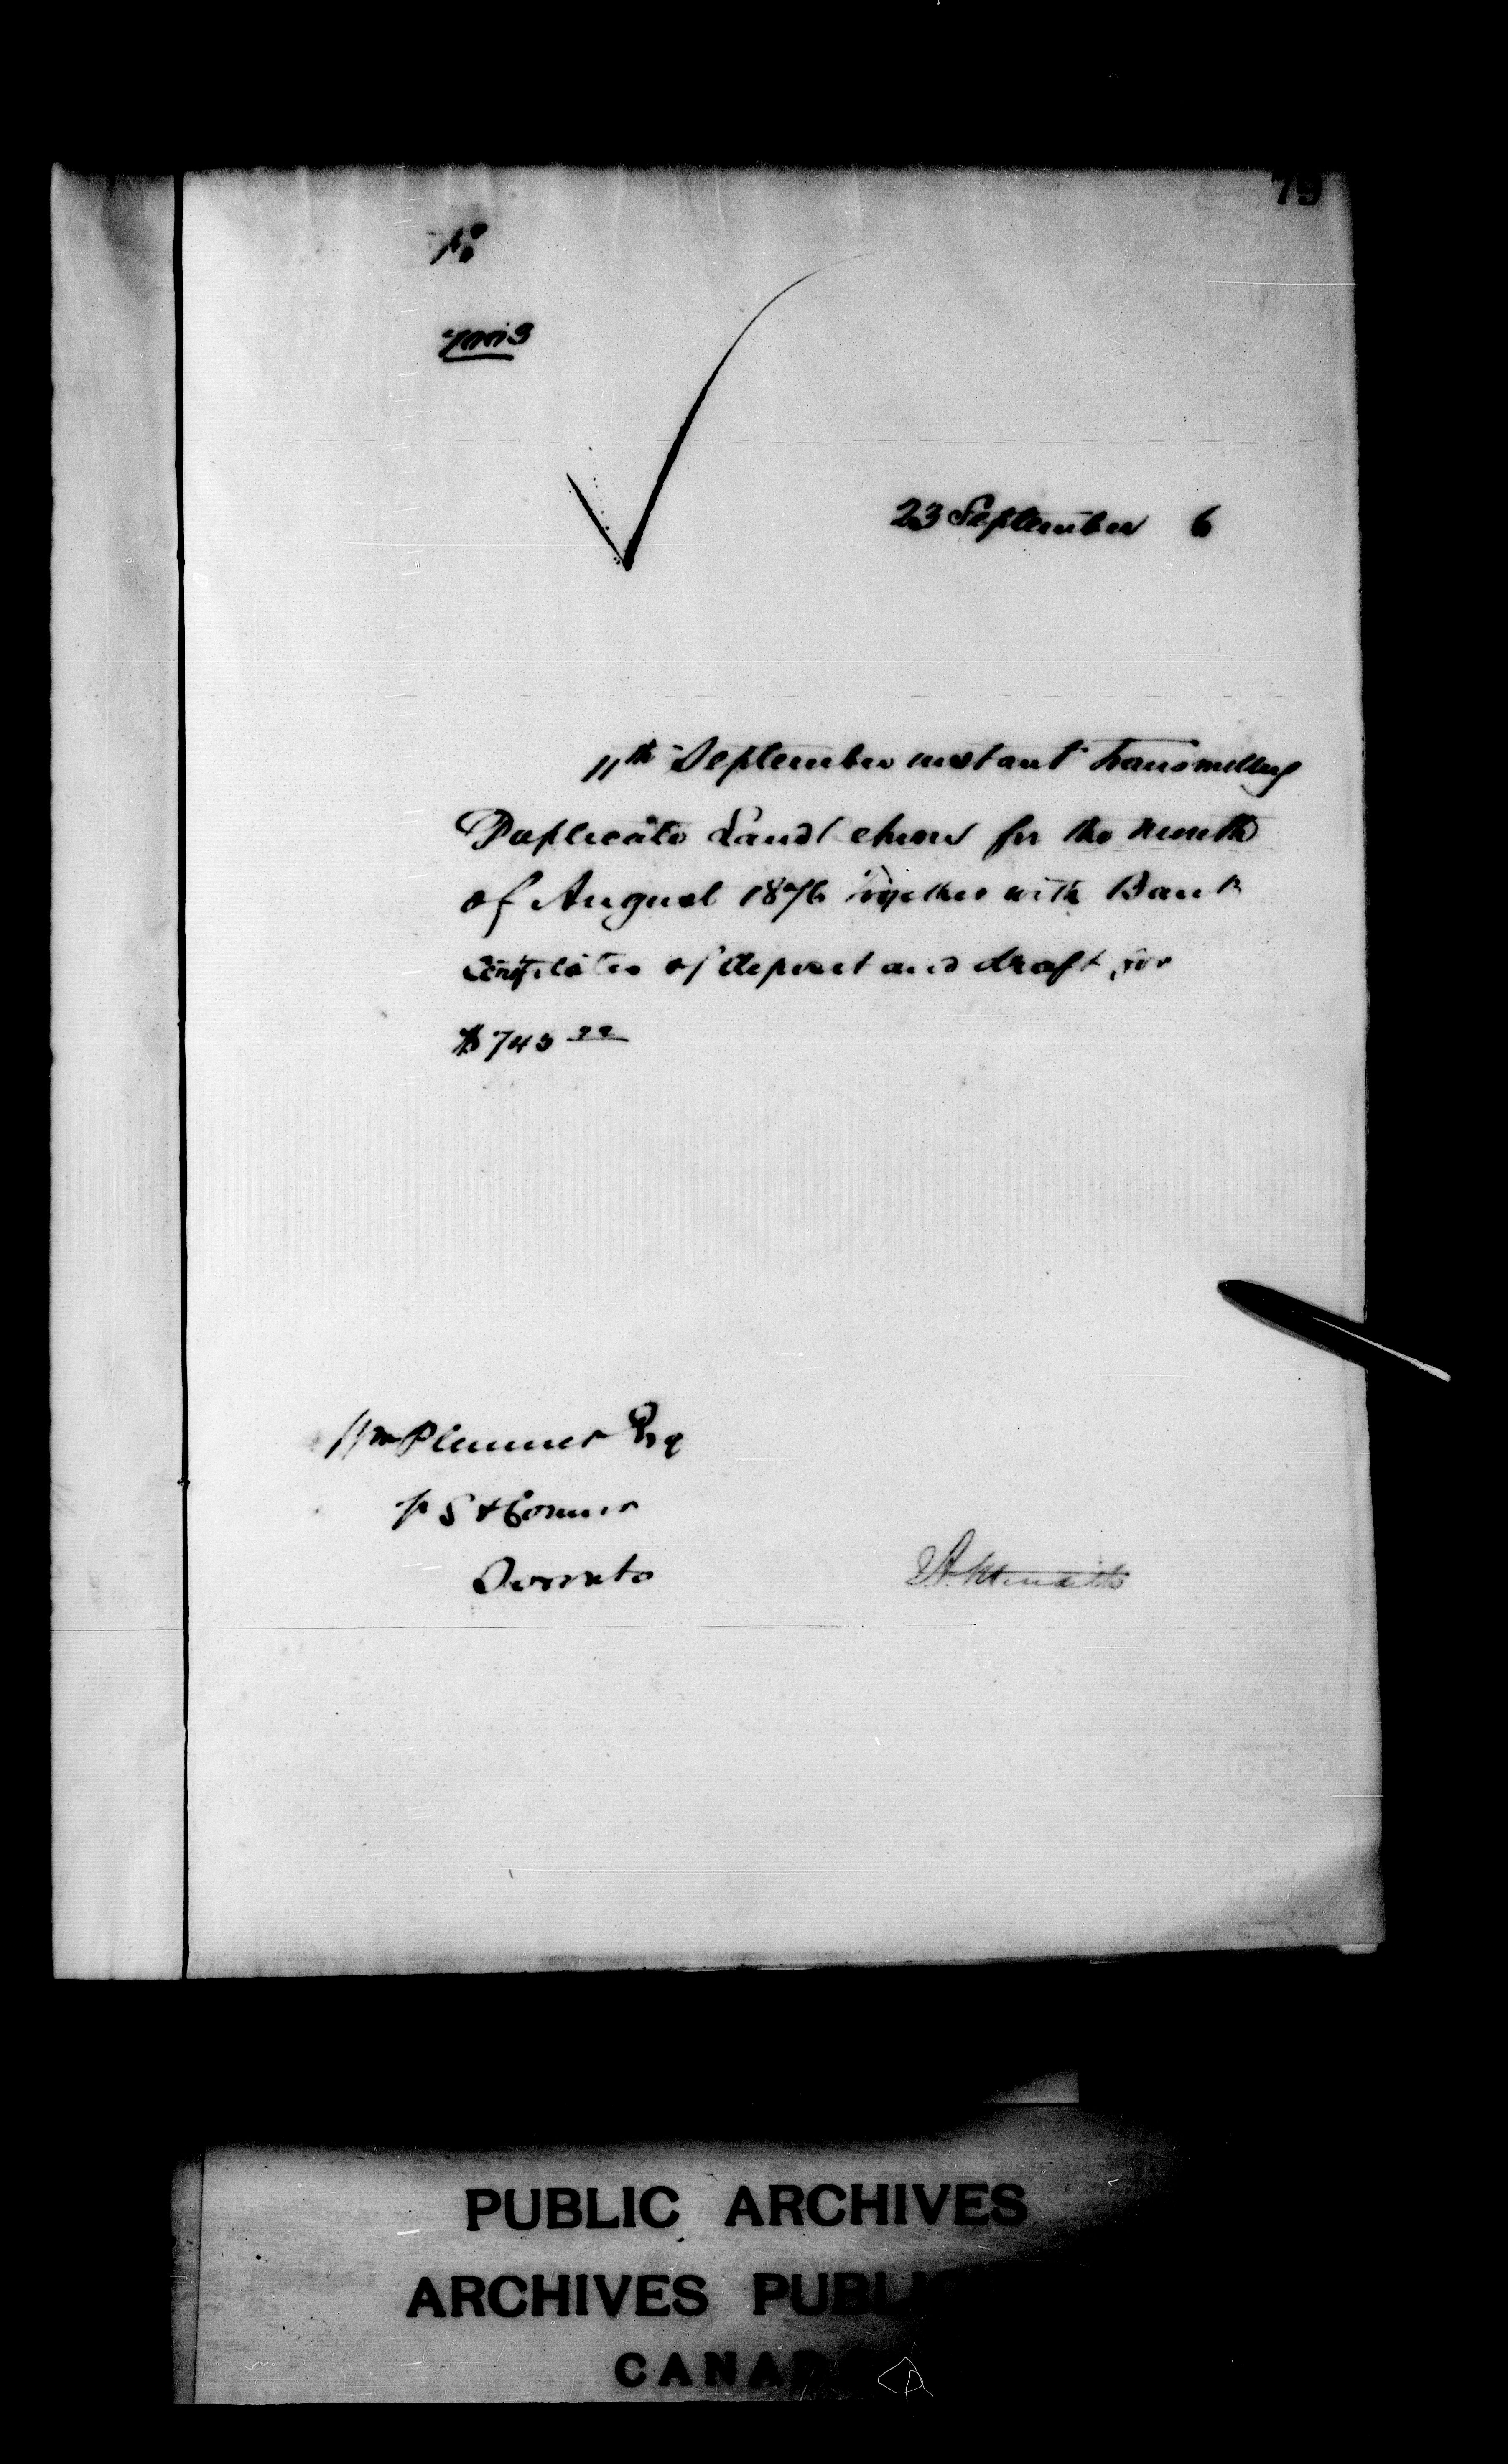 79
No
23 September 6
11th September instant transmitting
Duplicate Land for the month
of August 1876 together with Bank
Certificates of deposit and draft for
$743
Wm Plummer Esq
Toronto
PUBLIC ARCHIVES
ARCHIVES PUBLI
CANAD